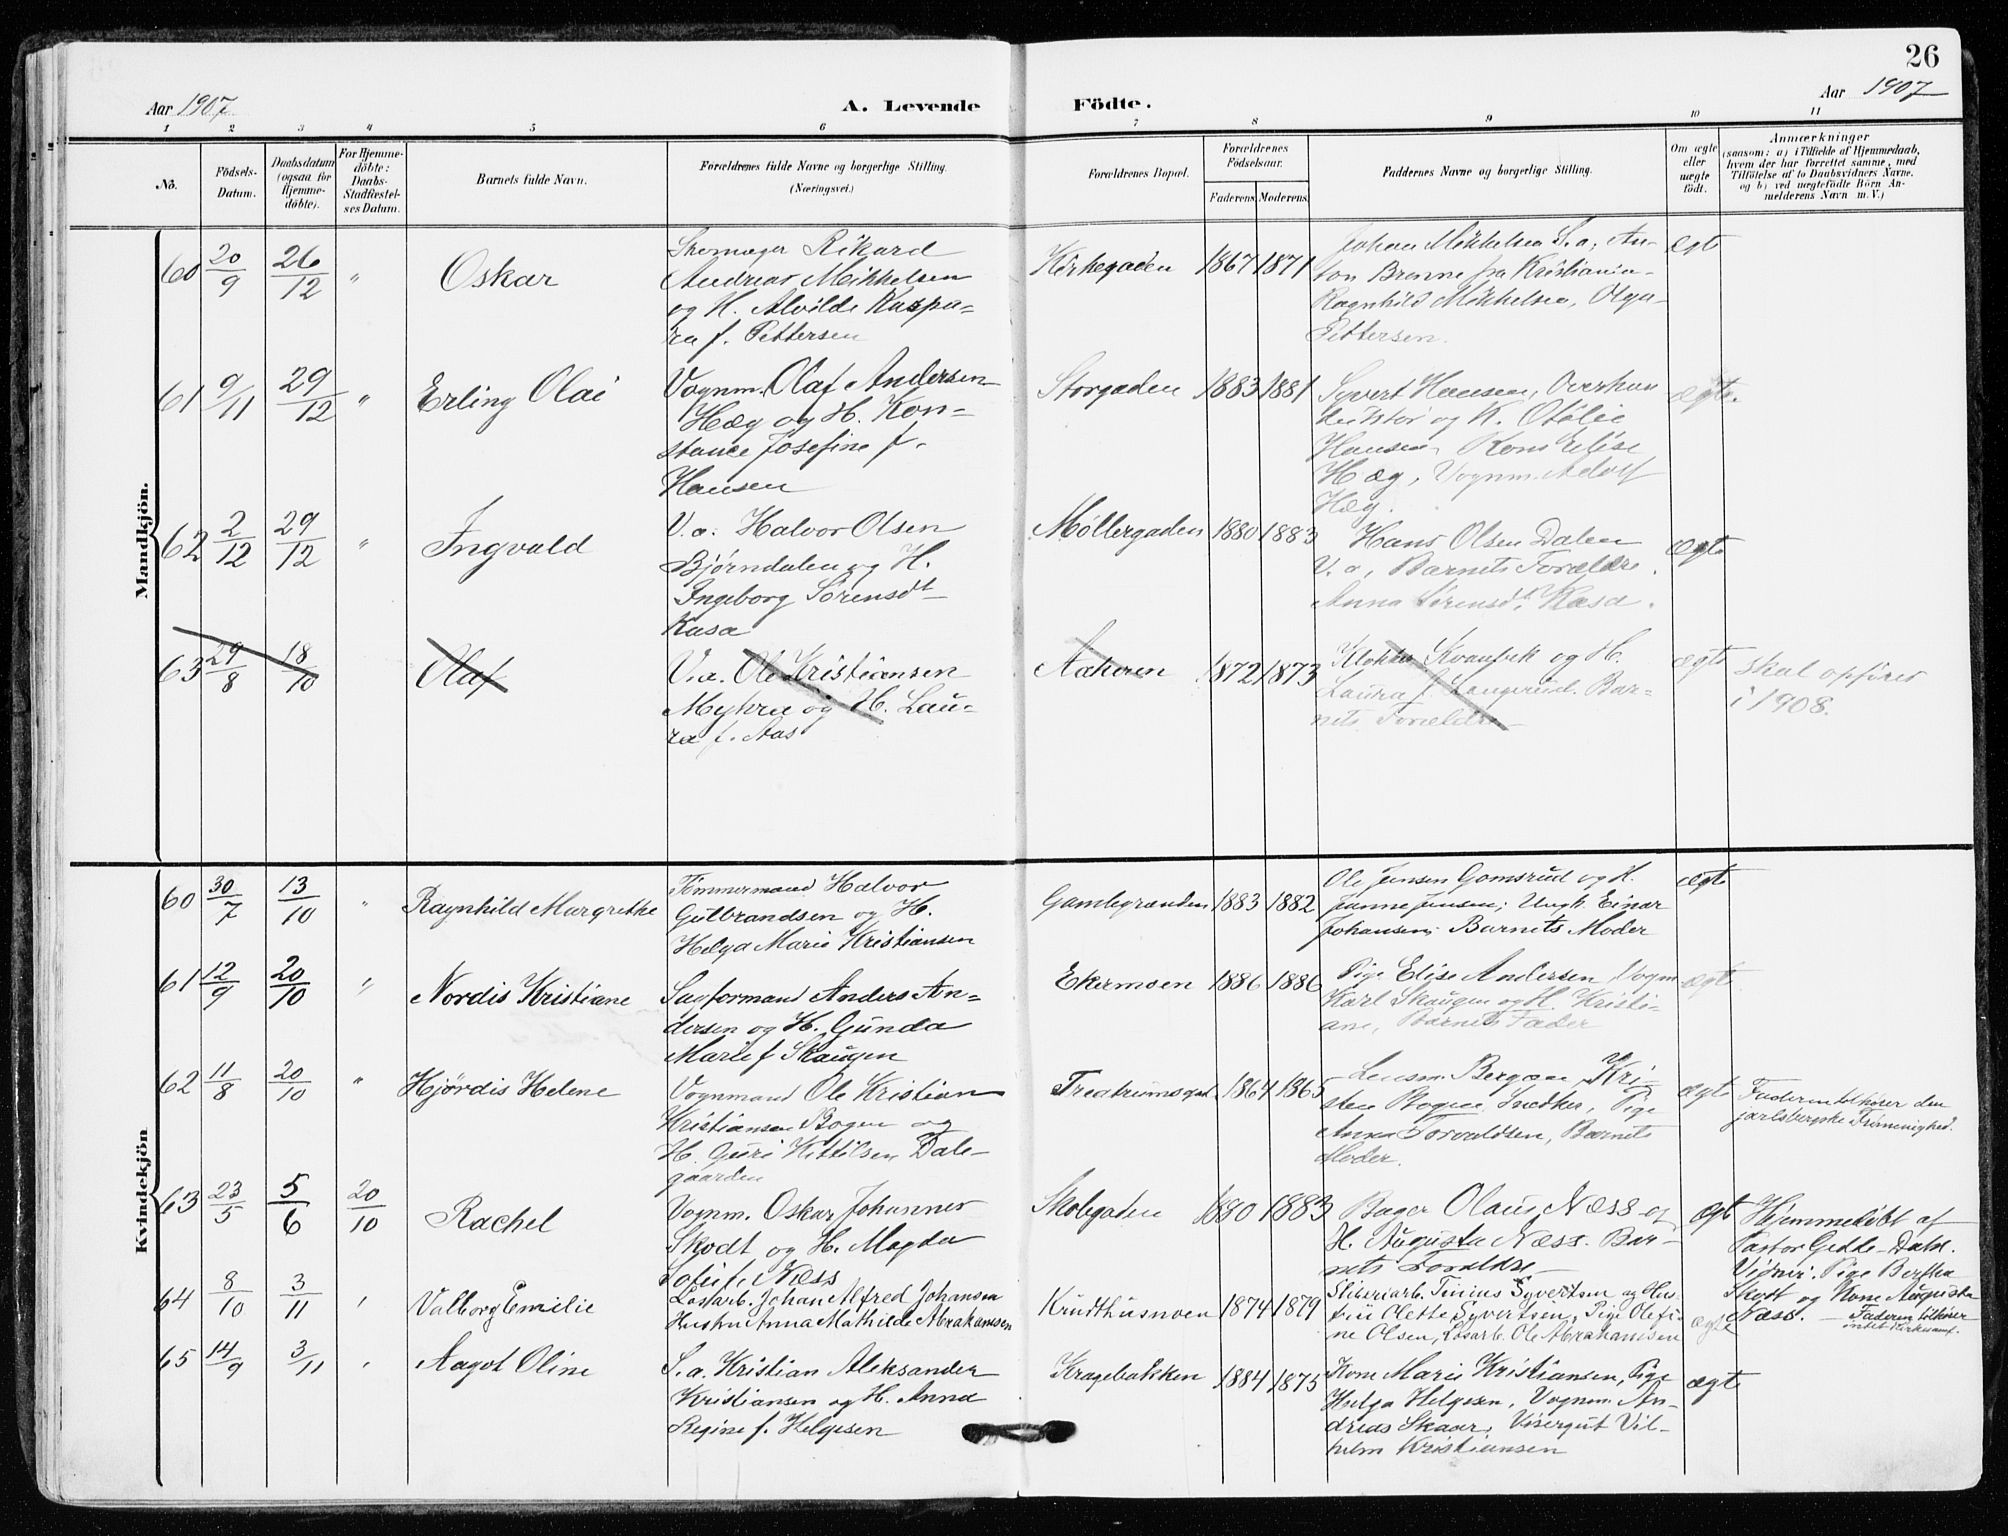 26
Aar 1907
A. Levende Födte.
Aar 1907
1 2 3 4 5 6 7 8 9 10 11
No.
Födsels-
Datum.
Daabsdatum
(ogsaa for
Hjemme-
döbte).
For Hjemme-
döbte:
Daabs-
Stadfæstel-
ses Datum.
Barnets fulde Navn.
Forældrenes fulde Navne og borgerlige Stilling.
(Næringsvei.)
Forældrenes Bopæl.
Forældrenes
Födselsaar.
Faderens. Moderens.
Faddernes Navne og borgerlige Stilling.
Om ægte
eller
uægte
födt.
Anmærkninger
(saasom: a) i Tilfælde af Hjemmedaab,
hvem der har forrettet samme, med
Tilföielse af to Daabsvidners Navne,
og b) ved uægtefödte Börn An-
melderens Navn m. V.)
Mandkjön.
60 20/9 26/12 " Oskar
Skomager Rikard
Andreas Mikkelsen
og H. Alvilde Kaspa-
ra f. Pettersen
Kirkegaden 1867 1871
Johan Mikkelsen S. a, An-
ton Brenne fra Kristiania
Ragnhild Mikkelsen, Olga
Pettersen.
ægt
61 9/11 29/12 " Erling Olai
Vognm. Olaf Andersen
Hæg og H. Kon-
stance Josefine f.
Hansen
Storgaden 1883 1881
Syvert Hansen,
og K. Otilie
Hansen, Kone Elise
Hæg, Vognm. Adolf
Hæg.
ægte.
62 2/12 29/12 " Ingvald
V. a. Halvor Olsen
Bjørndalen og H.
Ingeborg Sørensdt
Kasa
Møllergaden 1880 1883
Hans Olsen Dalen
V. a, Barnets Forældre.
Anna Sørensdt. Kasa.
ægte
63 29/8 18/10 Olaf
V. a. Ole Kristiansen
Myhra og H. Lau-
ra f. Aas
Aakeren 1872 1873
Klokker Kvanvik og H.
Laura f. Langerud. Bar-
nets Forældre
ægte
skal opføres
i 1908.
Kvindekjön
60 30/7 13/10 " Ragnhild Margrethe
Tømmermand Halvor
Gulbrandsen og H.
Helga Marie Kristiansen
Gamlegrænden 1883 1882
Ole Jensen Gomsrud og H.
Jenne Jensen; Ungk. Einar
Johansen; Barnets Moder
ægte
61 12/9 20/10 " Nordis Kristiane
Sagformand Anders An-
dersen og H. Gunda
Marie f Skaugen
Ekermoen 1886 1886
Pige Elise Andersen, Vogm
Karl Skaugen og H. Kristi-
ane, Barnets Fader
ægte
62 11/8 20/10 " Hjørdis Helene
Vognmand Ole Kristian
Kristiansen Bogen og
H. Guri Kittilsen Dale-
gaarden
1864 1865
Lensm. Bergan, Kri-
sten Bogen, Snedker, Pige
Anna Torvaldsen, Barnets
Moder.
ægte
Faderen tilhører den
jarlsbergske Frimenighed.
63 23/5 5/6 20/10 Rachel
Vognm. Oskar Johannes
Skodt og H. Magda
Sofie f. Næss
Skolegaden 1880 1883
Bager Olaus Næss og
H. Augusta Næss. Bar-
nets Forældre
ægte
Hjemmedøbt af
Pastor Gedde-Dahl.
Vidner: Pige Bertha
Skodt og Kone Augusta
Næss. — Faderen tilhører
intet Kirkesamf.
64 8/10 3/11 " Valborg Emilie
Løsarb. Johan Alfred Johansen
Hustru Anna Mathilde Abrahamsen
Krudthusmoen 1874 1879
Sliberiarb. Tinius Syvertsen og Hus-
tru Olette Syvertsen, Pige Olefi-
ne Olsen, Løsarb. Ole Abrahamsen
ægte
65 14/9 3/11 " Aagot Oline
S. a. Kristian Aleksander
Kristiansen og H. Anna
Regine f. Helgesen
Kragebakken 1884 1875
Kone Marie Kristiansen, Pige
Helga Helgesen, Vognm. An-
dreas Skaar, Visergut Vil-
helm Kristiansen
ægte